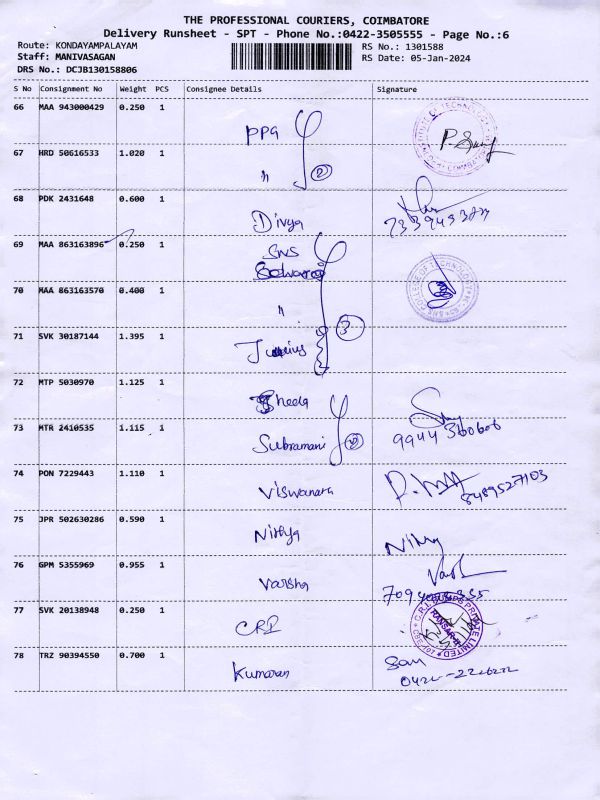 THE PROFESSIONAL COURIERS, COIMBATORE
Delivery Runsheet - SPT - Phone No.:0422-3505555 - Page No.:6
Route: KONDAYAMPALAYAM RS No.: 1301588
Staff: MANIVASAGAN RS Date: 05-Jan-2024
DRS No.: DCJB130158806
S No Consignment No Weight PCS Consignee Details Signature
66 MAA 943000429 0.250 1 PPG
67 HRD 50616533 1.020 1 " 2
68 PDK 2431648 0.600 1 Divya
69 MAA 863163896 0.250 1 SNS
70 MAA 863163570 0.400 1 "
71 SVK 30187144 1.395 1 3
72 MTP 5030970 1.125 1 Sheela
73 MTR 2410535 1.115 1 Subramani 2 9944360606
74 PON 7229443 1.110 1 Viswanath 8489527103
75 JPR 502630286 0.590 1 Nithya Nithy
76 GPM 5355969 0.955 1 Varsha
77 SVK 20138948 0.250 1 CRI
78 TRZ 90394550 0.700 1 Kumaran